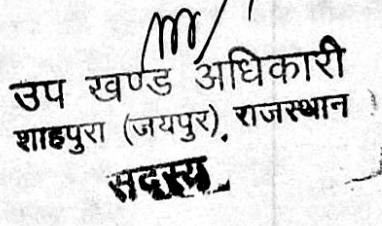 उप खण्ड अधिकारी
शाहपुरा (जयपुर), राजस्थान
सदस्य